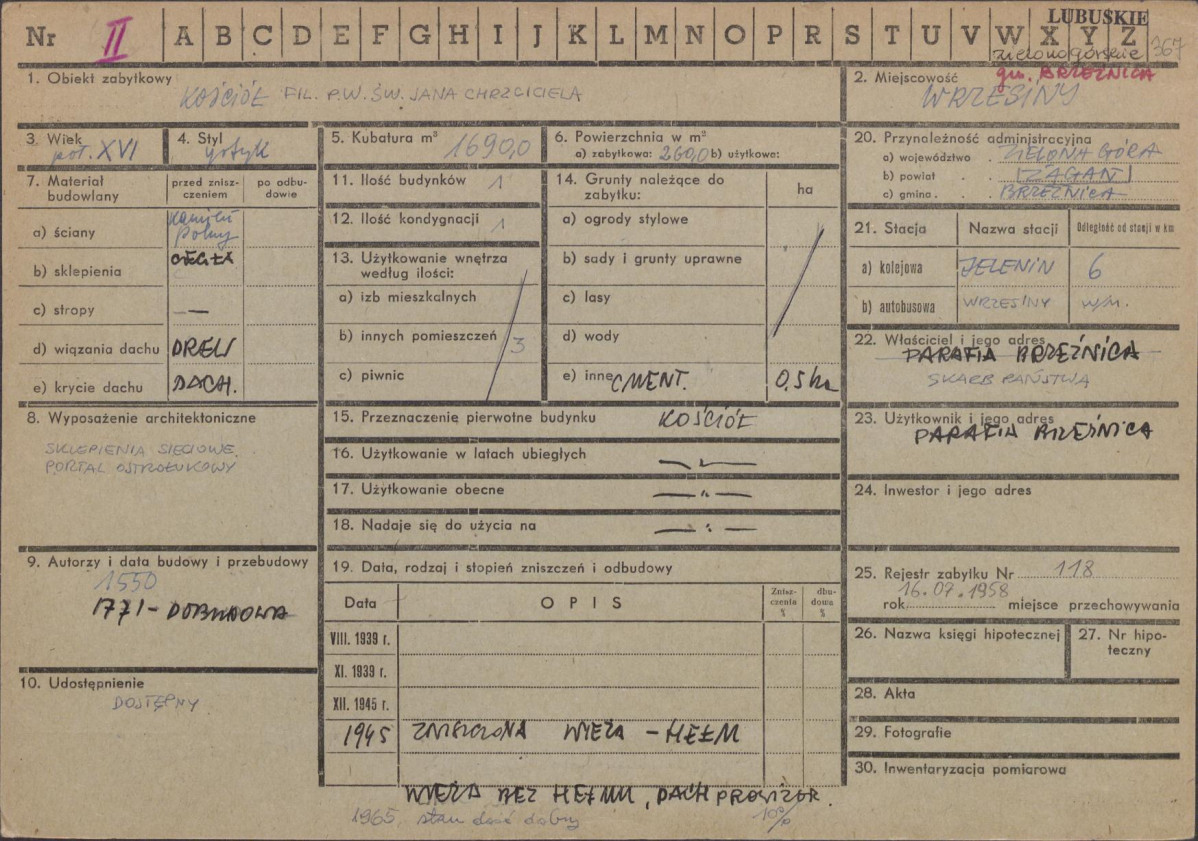 Nr II A B C D E F G H I J K L M N O P R S T U V W X Y Z
LUBUSKIE
zielonogórskie 367
gm. BRZEŹNICA
1. Obiekt zabytkowy
KOŚCIÓŁ FIL. P.W. ŚW. JANA CHRZCICIELA
2. Miejscowość
WRZESINY
3. Wiek
poł. XVI
4. Styl
gotyk
5. Kubatura m³ 1690,0
6. Powierzchnia w m²
a) zabytkowa: 260,0 b) użytkowe:
7. Materiał budowlany
przed zniszczeniem
po odbudowie
a) ściany
kamień polny
b) sklepienia CEGŁA
c) stropy —
d) wiązania dachu DREW
e) krycie dachu DACH.
8. Wyposażenie architektoniczne
SKLEPIENIA SIECIOWE.
PORTAL OSTROŁUKOWY
9. Autorzy i data budowy i przebudowy
1550
1771 - DOBUDOWA
10. Udostępnienie
DOSTĘPNY
11. Ilość budynków 1
12. Ilość kondygnacji 1
13. Użytkowanie wnętrza
według ilości:
a) izb mieszkalnych
b) innych pomieszczeń 3
c) piwnic
14. Grunty należące do
zabytku:
ha
a) ogrody stylowe
b) sady i grunty uprawne
c) lasy
d) wody
e) inne CMENT. 0,5 ha
15. Przeznaczenie pierwotne budynku KOŚCIÓŁ
16. Użytkowanie w latach ubiegłych —„—
17. Użytkowanie obecne —„—
18. Nadaje się do użycia na —„—
19. Data, rodzaj i stopień zniszczeń i odbudowy
Data OPIS Zniszczenia % dbudowa %
VIII. 1939 r.
XI. 1939 r.
XII. 1945 r.
1945 ZNISZCZONA WIEŻA - HEŁM
WIEŻA BEZ HEŁMU, DACH PROWIZOR.
1965 stan dość dobry 10%
20. Przynależność administracyjna
a) województwo . ZIELONA GÓRA
b) powiat . . ŻAGAŃ
c) gmina . . BRZEŹNICA
21. Stacja Nazwa stacji Odległość od stacji w km
a) kolejowa JELENIN 6
b) autobusowa WRZESINY w/m.
22. Właściciel i jego adres
PARAFIA BRZEŹNICA
SKARB PAŃSTWA
23. Użytkownik i jego adres
PARAFIA BRZEŹNICA
24. Inwestor i jego adres
25. Rejestr zabytku Nr 118
16.07.1958
rok miejsce przechowywania
26. Nazwa księgi hipotecznej
27. Nr hipoteczny
28. Akta
29. Fotografie
30. Inwentaryzacja pomiarowa